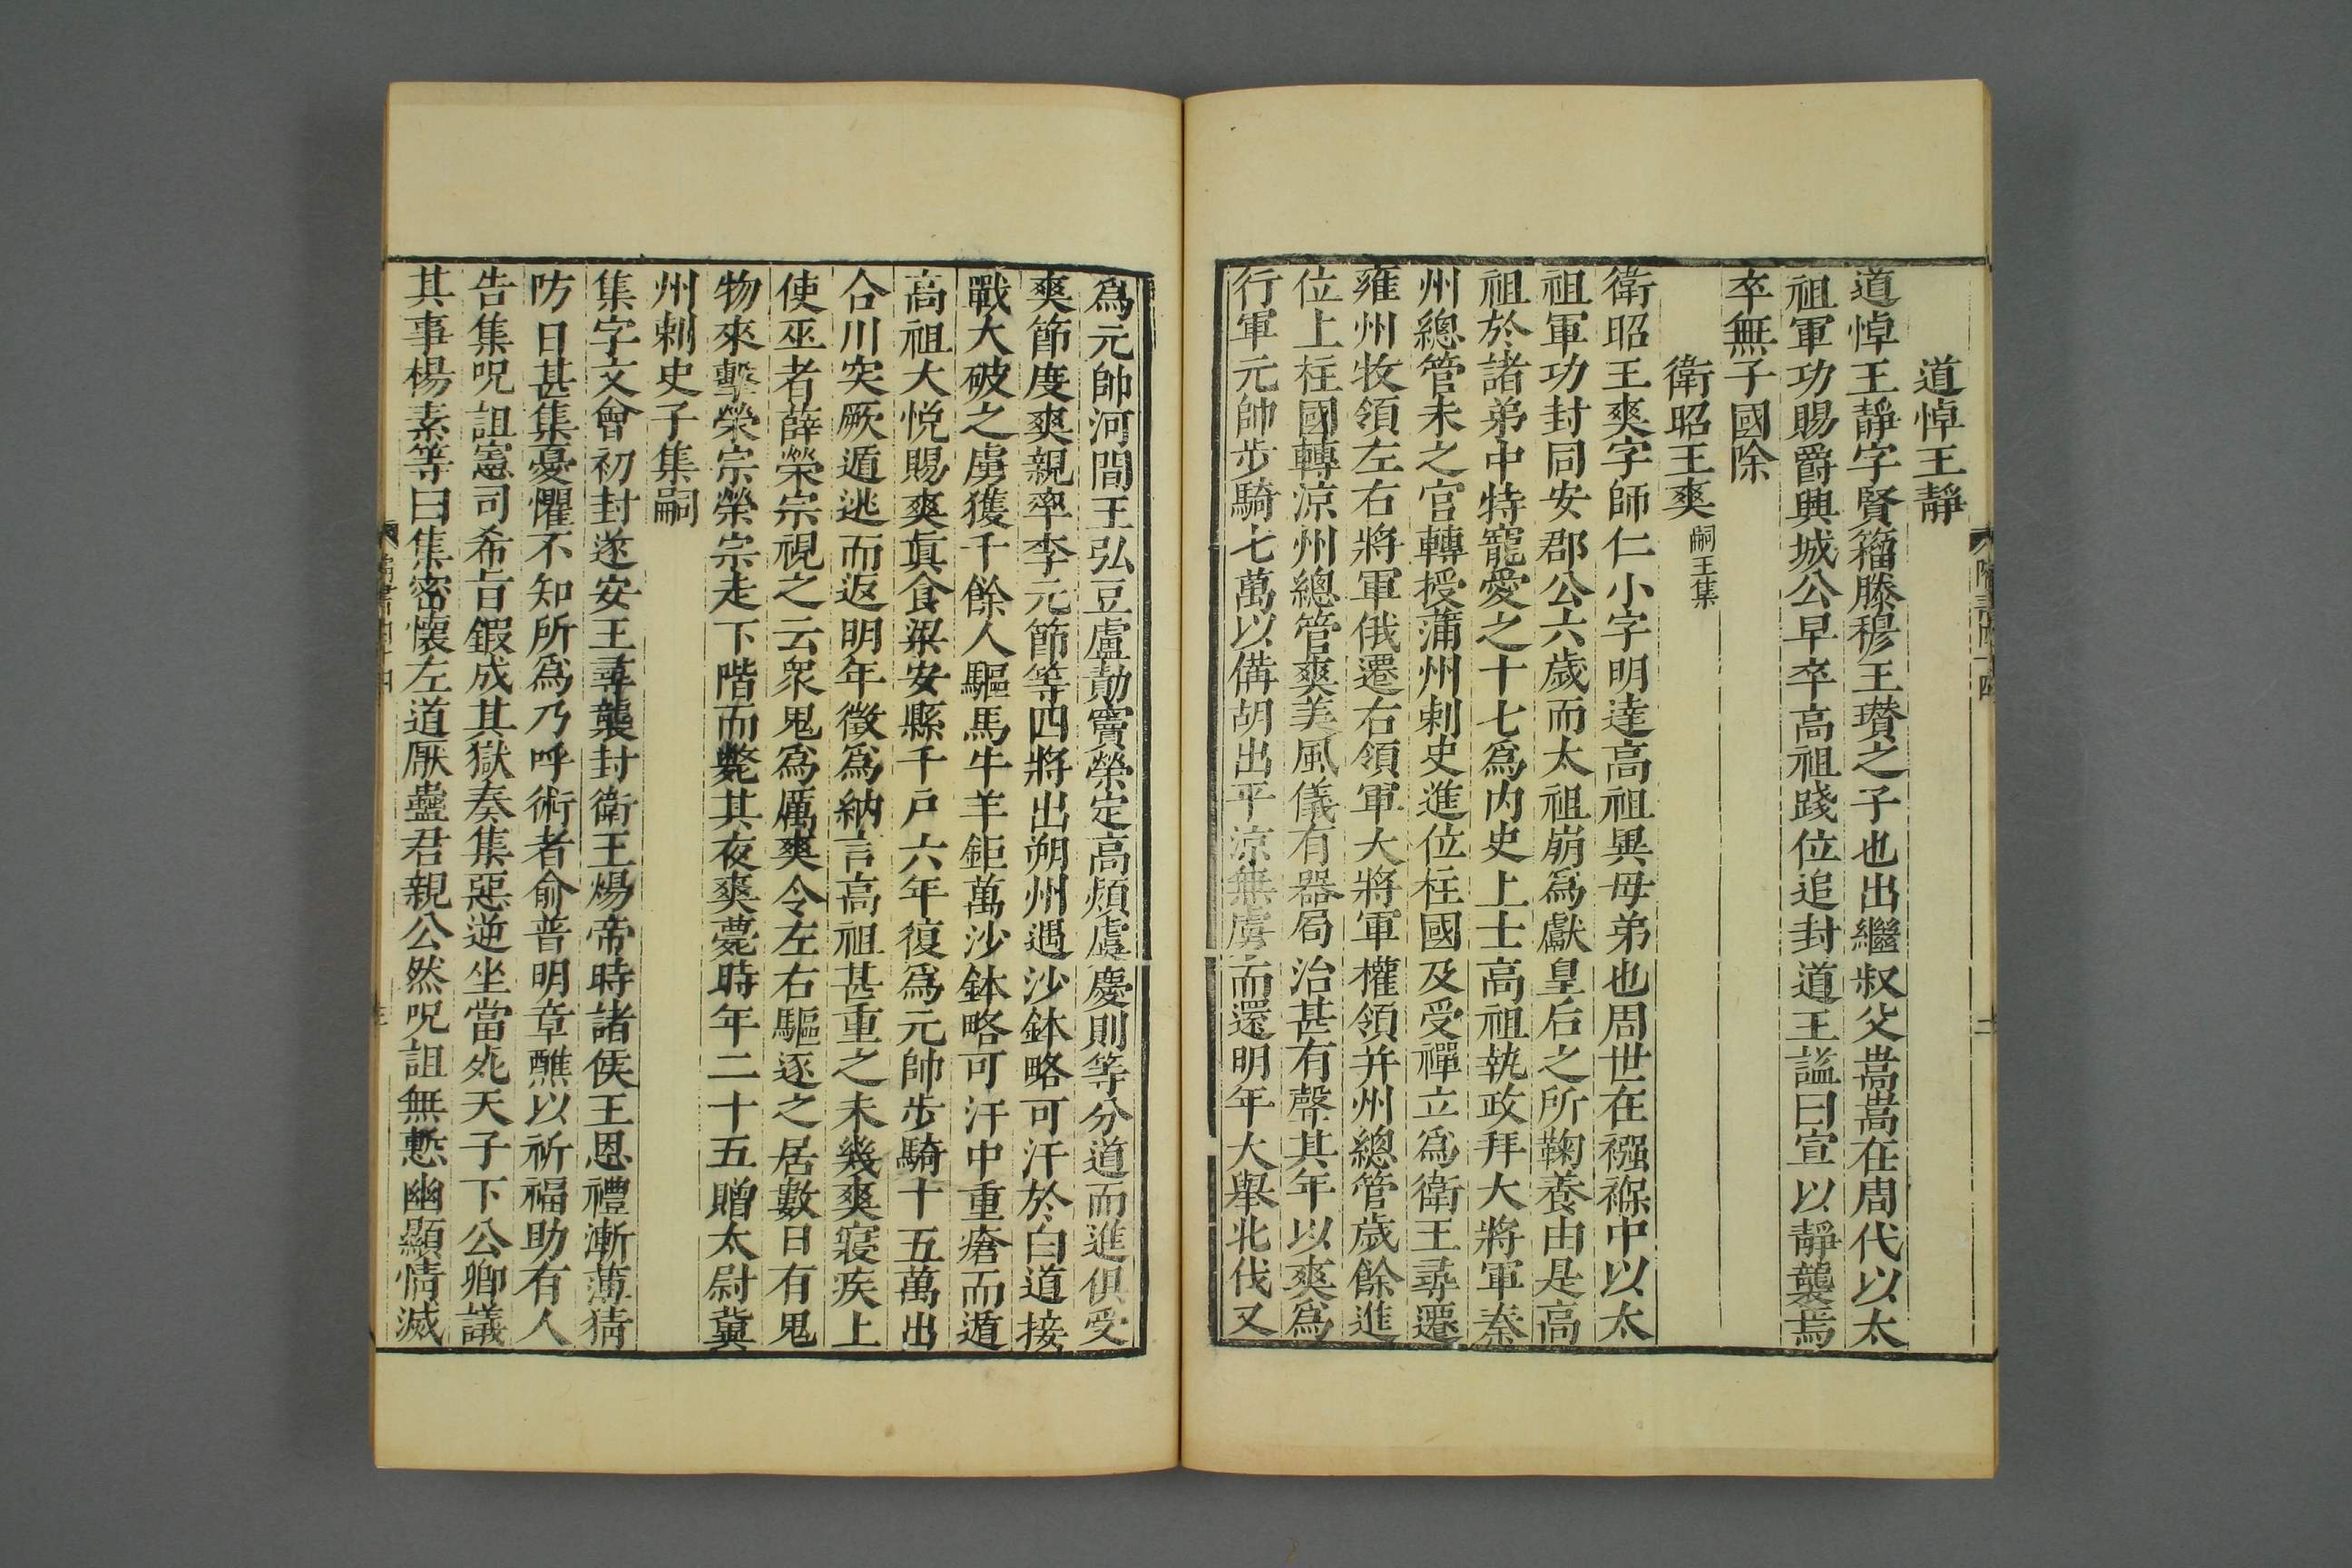 道悼王靜
道悼王靜字賢籀滕穆王瓚之子也出繼叔父嵩嵩在周代以太
祖軍功賜爵興城公早卒高祖踐位追封道王諡曰宣以靜襲焉
卒無子國除
衛昭王爽 嗣王集
衛昭王爽字師仁小字明達高祖異母弟也周世在襁褓中以太
祖軍功封同安郡公六歲而太祖崩爲獻皇后之所鞠養由是高
祖於諸弟中特寵愛之十七爲内史上士高祖執政拜大將軍秦
州總管未之官轉授蒲州刺史進位柱國及受禪立爲衛王尋遷
雍州牧領左右將軍俄遷右領軍大將軍權領并州總管歲餘進
位上柱國轉涼州總管爽美風儀有器局治甚有聲其年以爽爲
行軍元帥步騎七萬以備胡出平涼無虜而還明年大舉北伐又
爲元帥河間王弘豆盧勣竇榮定高熲虞慶則等分道而進俱受
爽節度爽親率李元節等四將出朔州遇沙鉢略可汗於白道接
戰大破之虜獲千餘人驅馬牛羊鉅萬沙鉢略可汗中重瘡而遁
高祖大悅賜爽真食梁安縣千戶六年復爲元帥步騎十五萬出
合川突厥遁逃而返明年徵爲納言高祖甚重之未幾爽寢疾上
使巫者薛榮宗視之云衆鬼爲厲爽令左右驅逐之居數日有鬼
物來擊榮宗榮宗走下階而斃其夜爽薨時年二十五贈太尉冀
州刺史子集嗣
集字文會初封遂安王尋襲封衛王煬帝時諸侯王恩禮漸薄猜
防日甚集憂懼不知所爲乃呼術者俞普明章醮以祈福助有人
告集呪詛憲司希旨鍛成其獄奏集惡逆坐當死天子下公卿議
其事楊素等曰集密懷左道厭蠱君親公然呪詛無慙幽顯情滅